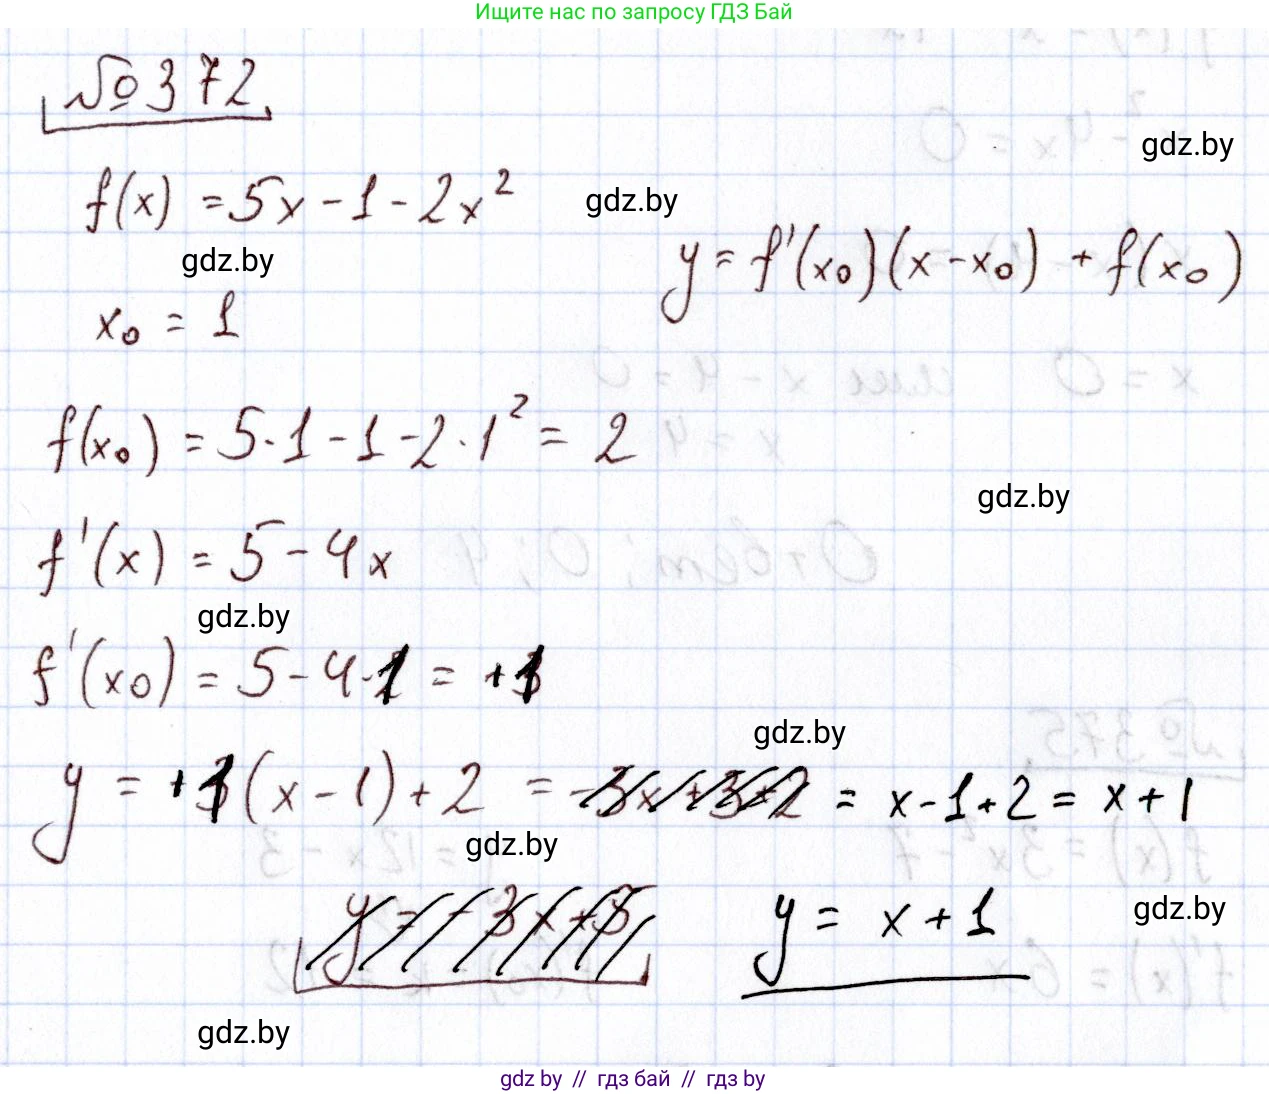 Ищите нас по запросу ГДЗ Бай
№372
gdz.by
f(x) = 5x - 1 - 2x²
gdz.by
gdz.by
y = f'(x₀)(x - x₀) + f(x₀)
x₀ = 1
f(x₀) = 5·1 - 1 - 2·1² = 2
gdz.by
f'(x) = 5 - 4x
gdz.by
f'(x₀) = 5 - 4·1 = +1
gdz.by
y = +1(x - 1) + 2 = -3x+3+2 = x - 1 + 2 = x + 1
gdz.by
y = -3x+5
y = x + 1
gdz.by
gdz.by
gdz by // гдз бай // гдз by